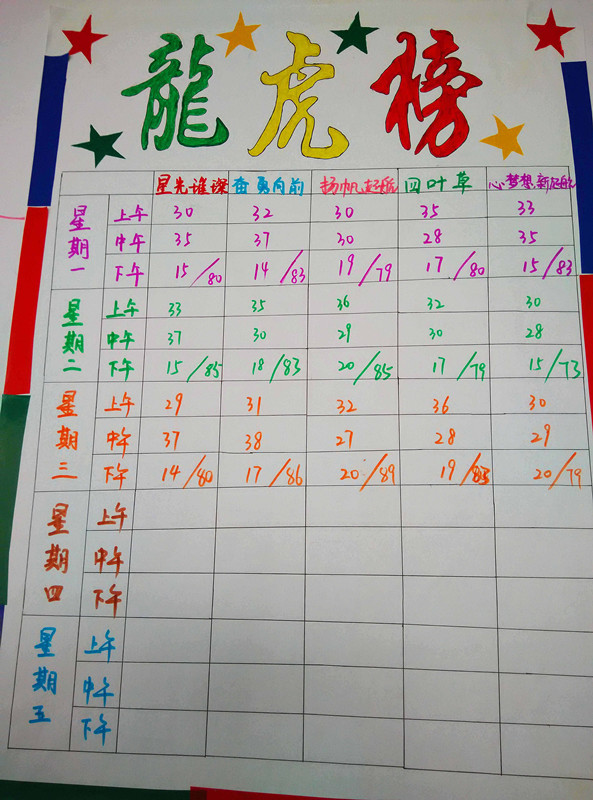 龍虎榜
星光璀璨 奋勇向前 扬帆起航 四叶草 心梦想新起航
星期一
上午 30 32 30 35 33
中午 35 37 30 28 35
下午 15/80 14/83 19/79 17/80 15/83
星期二
上午 33 35 36 32 30
中午 37 30 29 30 28
下午 15/85 18/83 20/85 17/79 15/73
星期三
上午 29 31 32 36 30
中午 37 38 27 28 29
下午 14/80 17/86 20/89 19/83 20/79
星期四
上午
中午
下午
星期五
上午
中午
下午